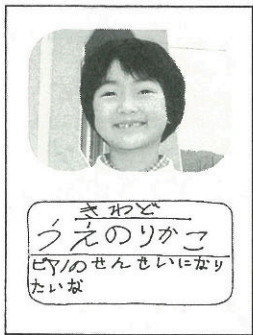 きわど
うえのりかこ
ピアノのせんせいになり
たいな